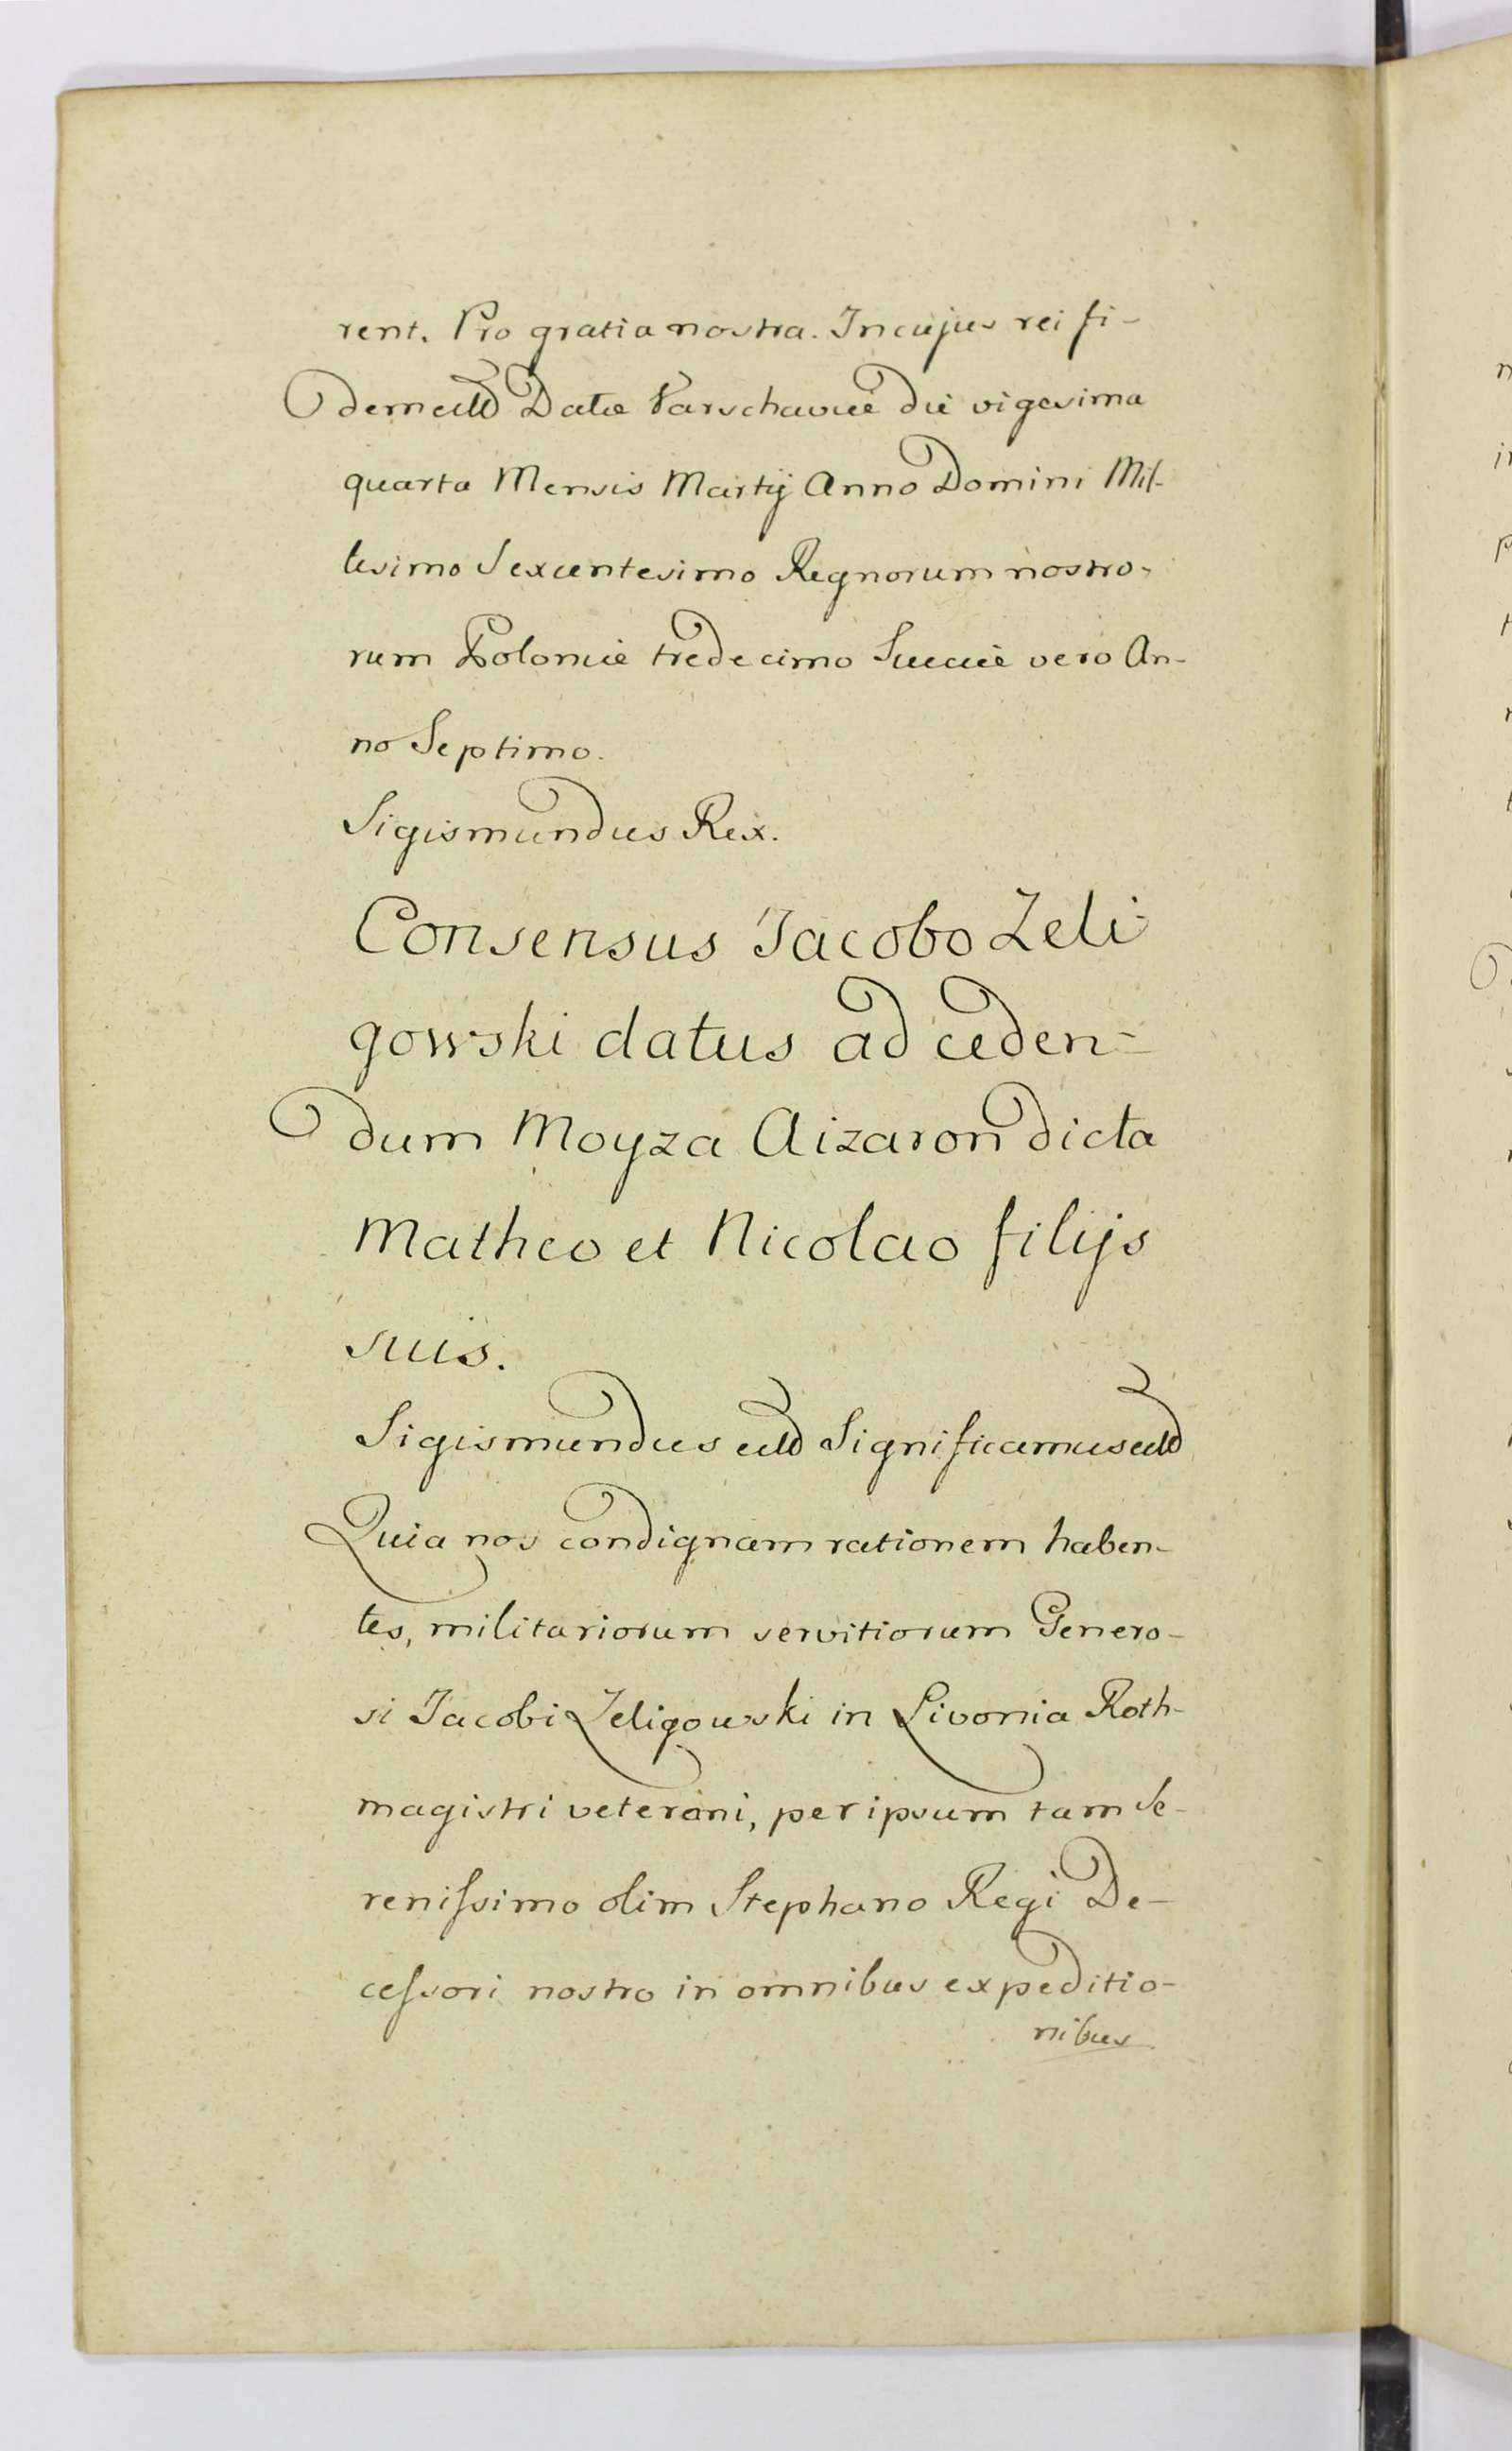 rent. Pro gratia nostra. In cujus rei fi-
dem etc Datæ Varschaviæ die vigesima
quarta Mensis Martij Anno Domini Mil-
lesimo Sexcentesimo Regnorum nostro-
rum Poloniæ tredecimo Sueciæ vero An-
no Septimo.
Sigismundus Rex.
Consensus Jacobo Zeli-
gowski datus ad ceden=
dum Moyza Aizaron dicta
Matheo et Nicolao filijs
suis.
Sigismundus etc Significamus etc
Quia nos condignam rationem haben-
tes, militariorum servitiorum Genero-
si Jacobi Zeligowski in Livonia Roth-
magistri veterani, per ipsum tam Se-
renissimo olim Stephano Regi De-
cessori nostro in omnibus expeditio-
nibus